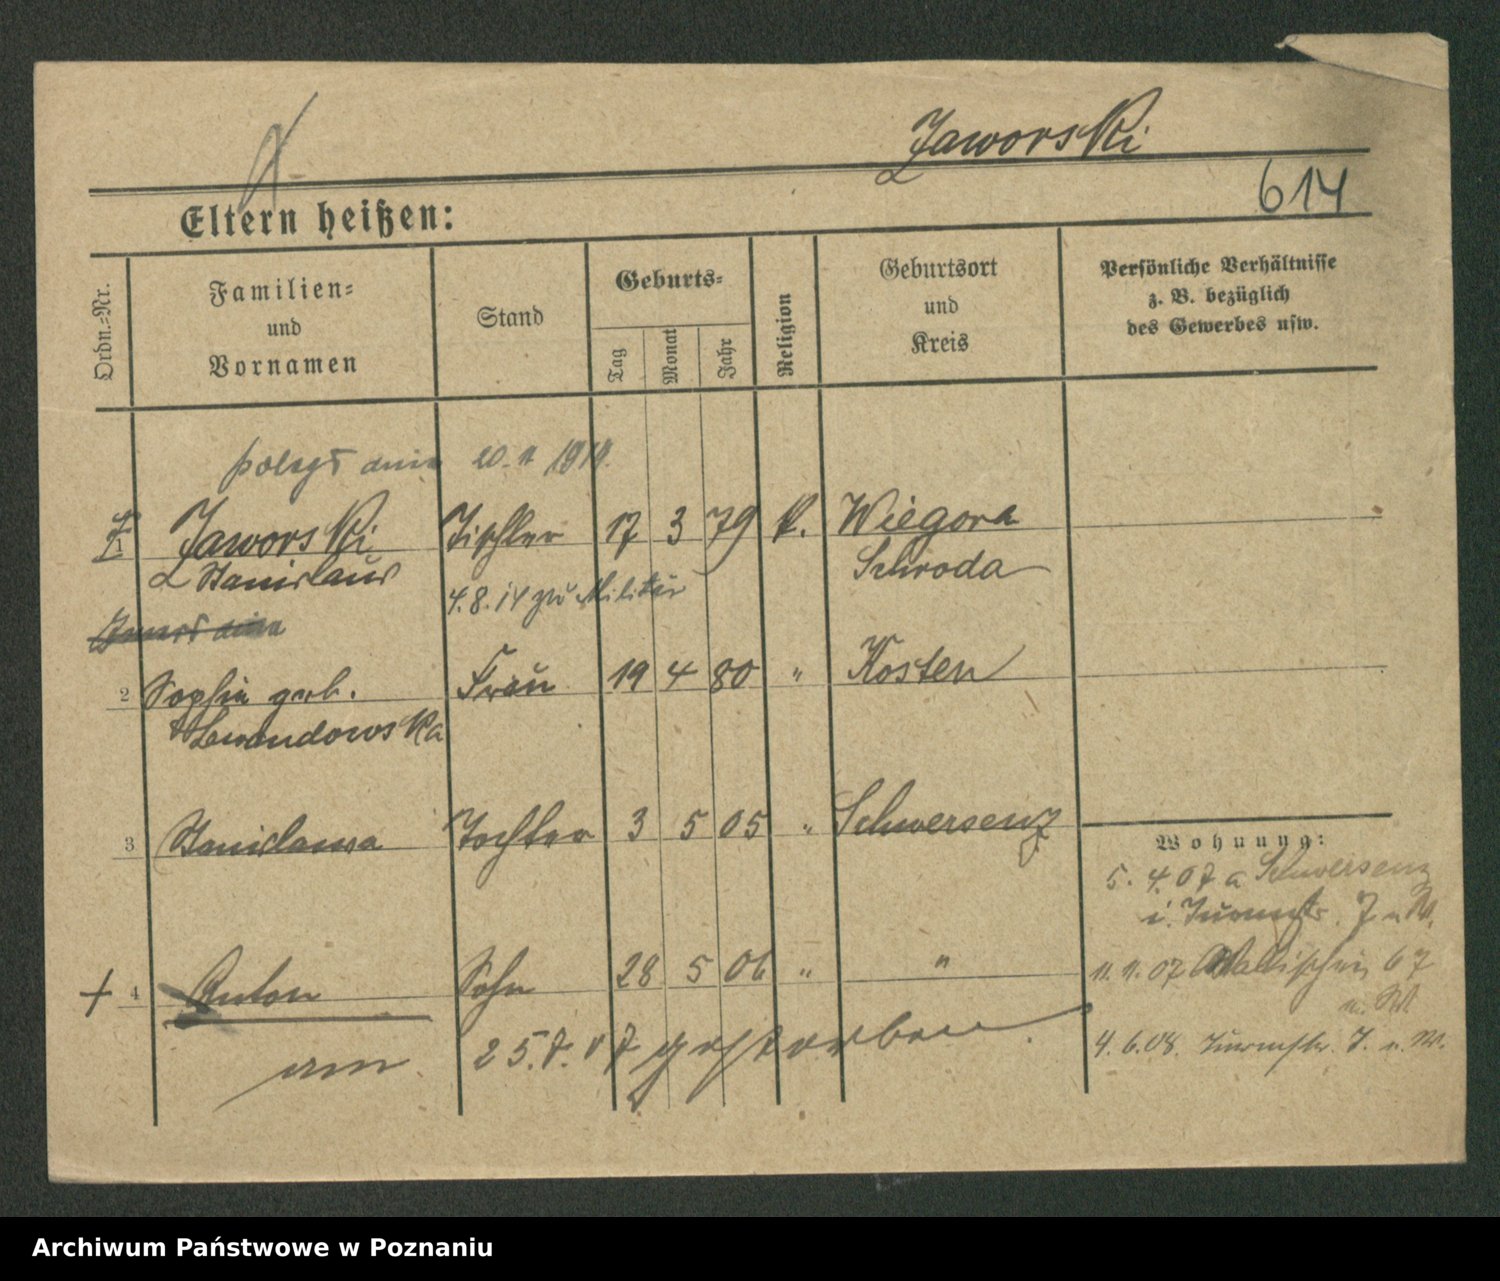 Jaworski
614
Eltern heißen:
Ordn.-Nr. Familien- und Vornamen Stand Geburts- Tag Monat Jahr Religion Geburtsort und Kreis Persönliche Verhältnisse z. B. bezüglich des Gewerbes usw.
poległ dnia 20. 11 1914.
Jaworski Tischler 17 3 79 k. Wiegora
Stanislaus Schroda
4.8.14 zu Militär
2 Sophie geb. Frau 19 4 80 " Kosten
Lewandowska
3 Stanislawa Tochter 3 5 05 " Schwersenz
Wohnung:
5. 4. 07 a Schwersenz
i. Turmstr. 7
+ 4 Anton Sohn 28 5 06 " "
11. 11. 07 Wallischei 67
am 25. 7. 07 gestorben
4. 6. 08. Turmstr. 7.
Archiwum Państwowe w Poznaniu